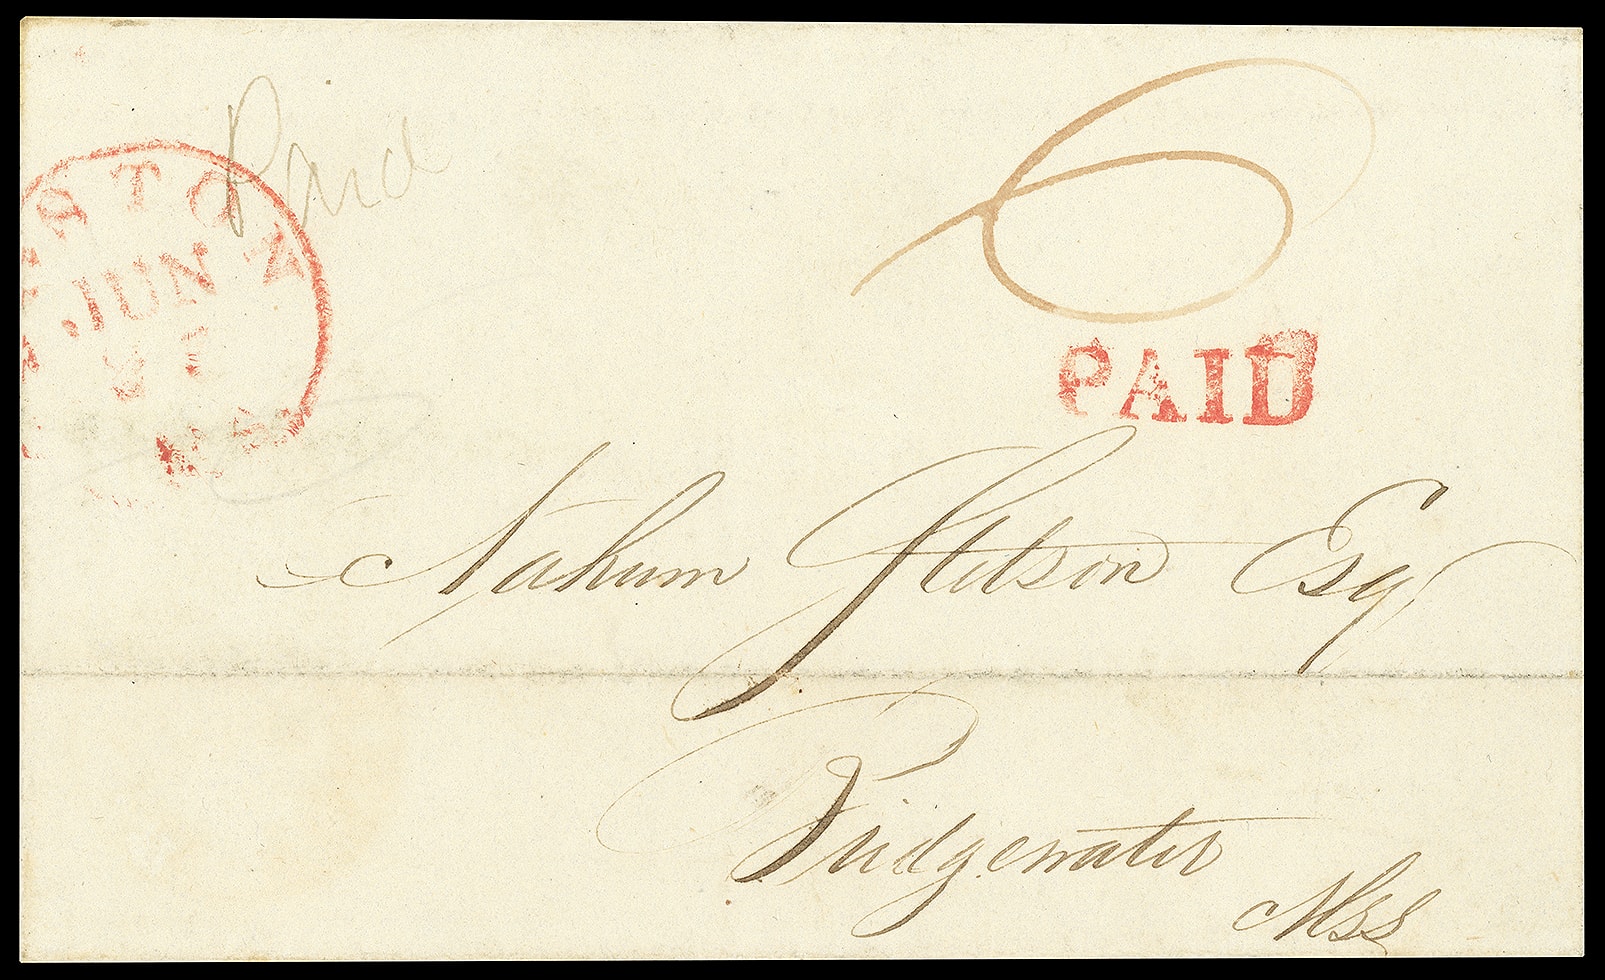 Paid
6
STON
JUN
PAID
Nahum Stetson Esq
Bridgewater
Mss